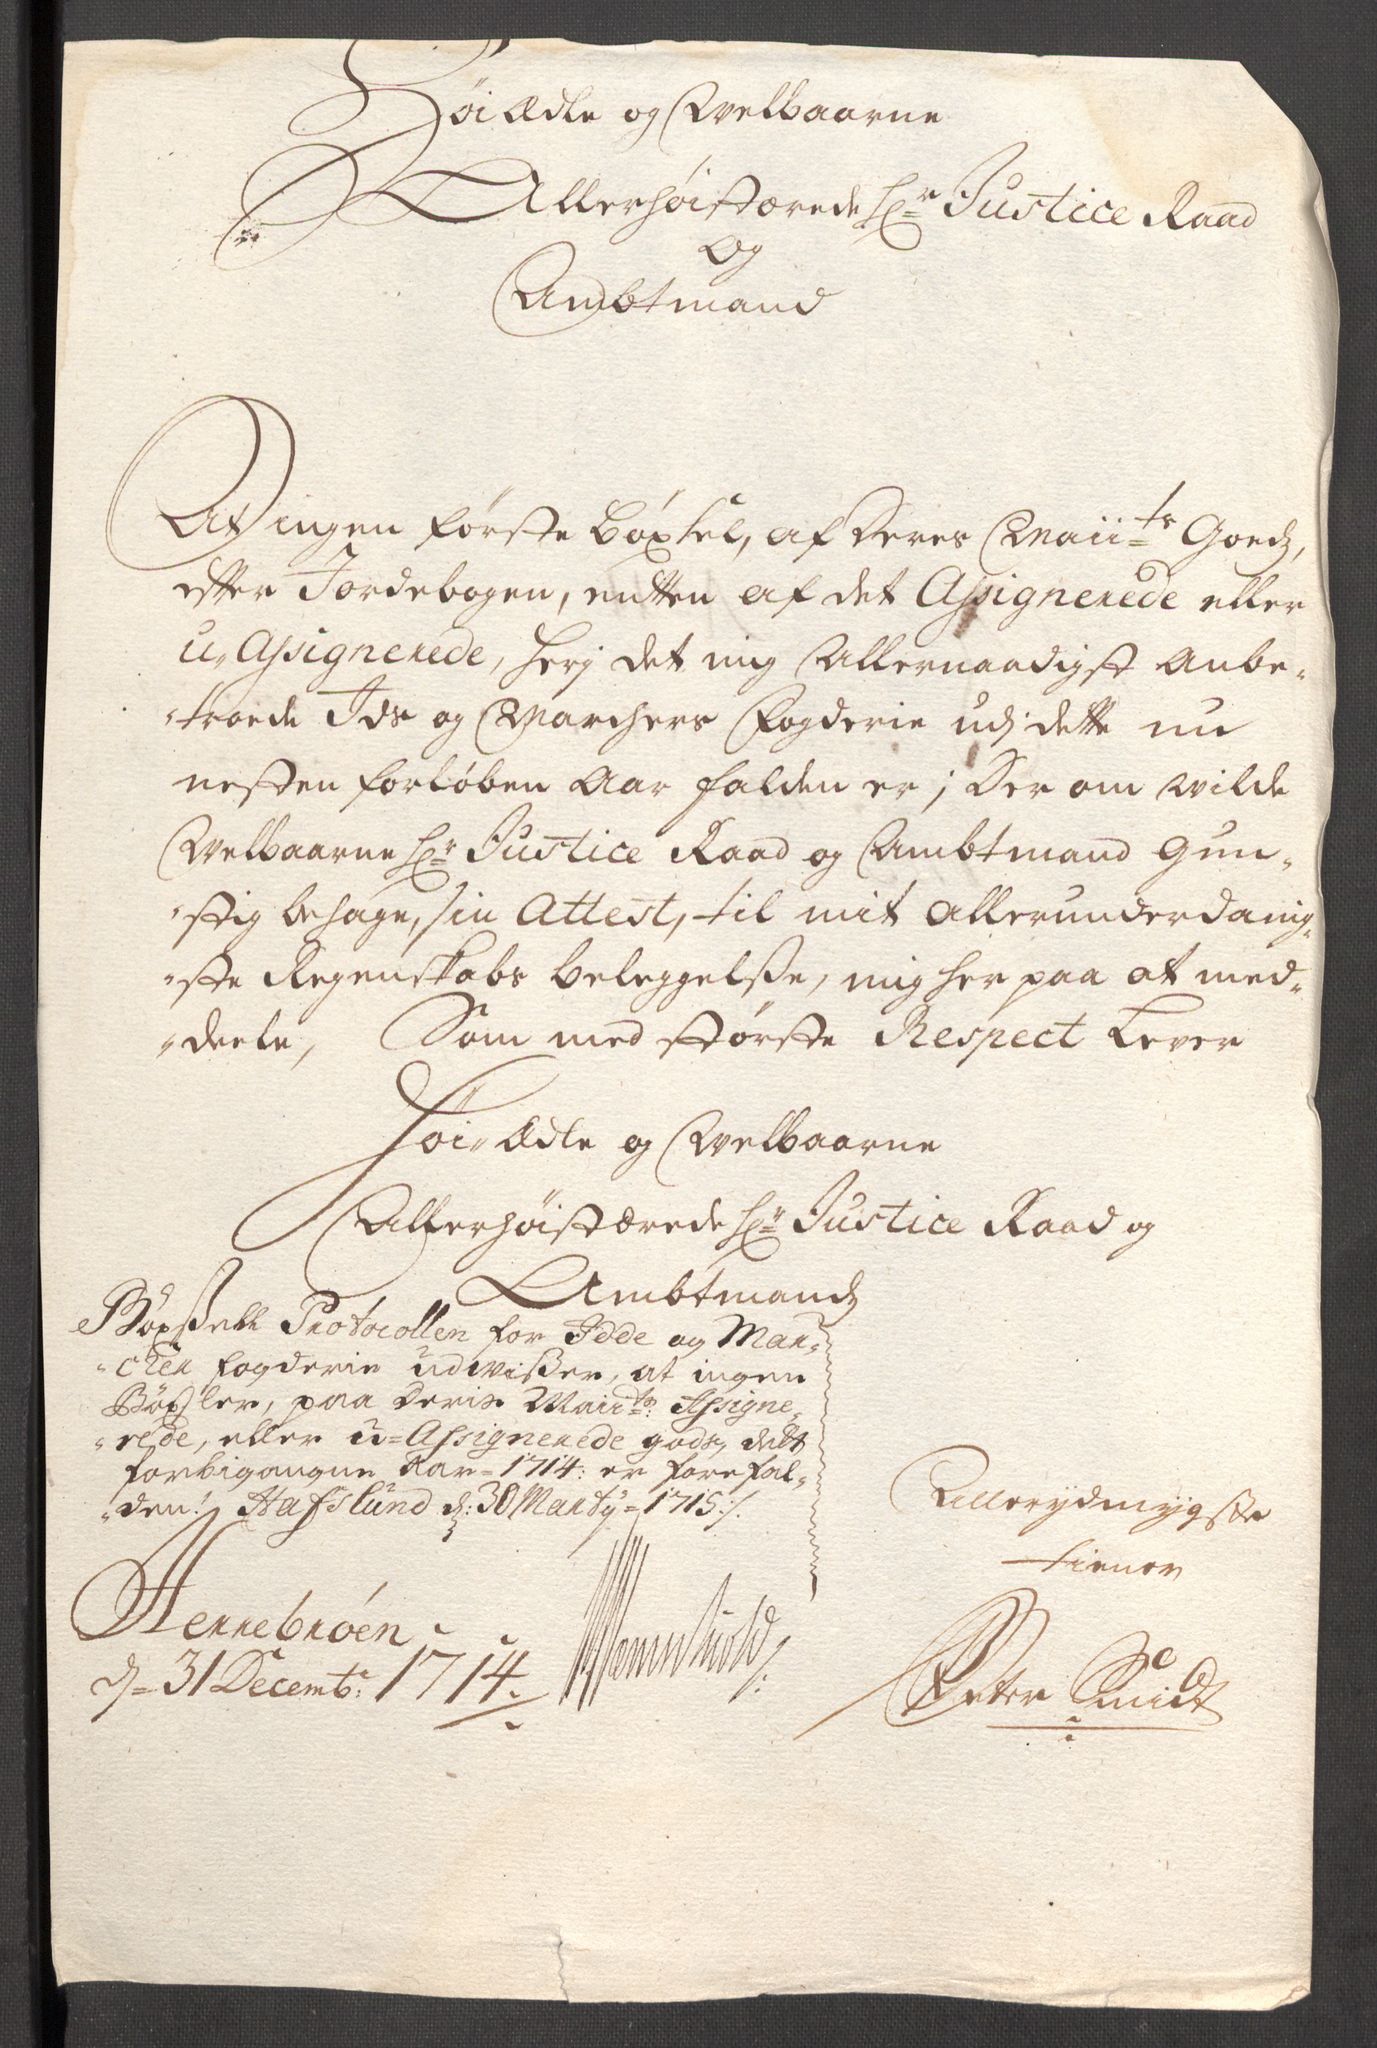 Høi Ædle og Welbaarne
Allerhøistærede Hr Justice Raad
Og
Ambtmand
At ingen første böxsel, af Deres Maiits Goedz,
efter Jordebogen, enten af det Assignerede eller
u-Assignerede, herj det mig Allernaadigst Anbe-
-troede Ids og Marchers Fogderie udj dette nu
nesten forløben Aar falden er; Der om wilde
Welbaarne Hr Justice Raad og Ambtmand gun-
-stig behage, sin Attest, til mit allerunderdanig-
-ste Regenskabs beleggelsse, mig her paa at med-
-deele, Som med største Respect Lever
Høi-Ædle og Welbaarne
Allerhøistærede Hr Justice Raad og
Ambtmandz
Böxsell Protocollen for Idde og Mar-
-cker fogderie udwisser, at ingen
Böxsler, paa Deris Maiits Assigne-
-rede, eller u-Assignerede godz, dett
forbigangne Aar-1714: er forefal-
-den: Hafslund d: 30 Marty-1715:/.
Allerydmygste
tiener
Herrebröen
d-31 Decembr: 1714.
Peter Smidt